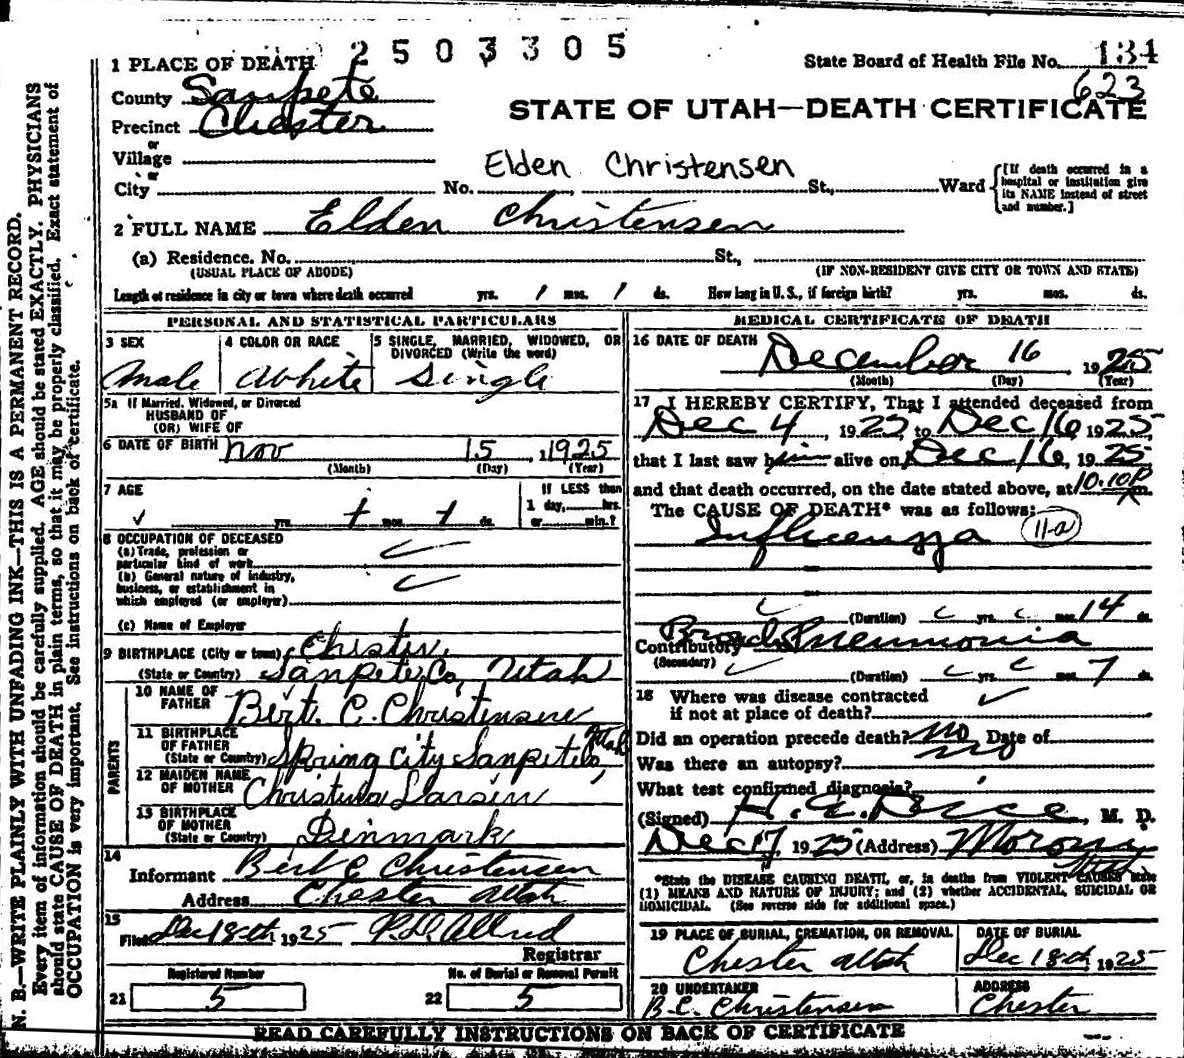 2503305
1 PLACE OF DEATH
State Board of Health File No. 134
623
County Sanpete
STATE OF UTAH—DEATH CERTIFICATE
Precinct Chester
or
Village
or
City
Elden Christensen
No. St., Ward
[If death occurred in a hospital or institution give its NAME instead of street and number.]
2 FULL NAME Elden Christensen
(a) Residence. No. St.,
(USUAL PLACE OF ABODE) (IF NON-RESIDENT GIVE CITY OR TOWN AND STATE)
Length of residence in city or town where death occurred yrs. 1 mos. 1 ds. How long in U. S., if foreign birth? yrs. mos. ds.
PERSONAL AND STATISTICAL PARTICULARS
3 SEX 4 COLOR OR RACE 5 SINGLE, MARRIED, WIDOWED, OR DIVORCED (Write the word)
Male White Single
5a If Married, Widowed, or Divorced
HUSBAND OF
(OR) WIFE OF
6 DATE OF BIRTH Nov 15, 1925
(Month) (Day) (Year)
7 AGE If LESS than
1 day, hrs.
yrs. 1 mos. 1 ds. or min.?
8 OCCUPATION OF DECEASED
(a) Trade, profession or
particular kind of work
(b) General nature of industry,
business, or establishment in
which employed (or employer)
(c) Name of Employer
9 BIRTHPLACE (City or town) Chester,
(State or Country) Sanpete Co, Utah
PARENTS
10 NAME OF
FATHER Bert. C. Christensen
11 BIRTHPLACE
OF FATHER
(State or Country) Spring City Sanpete Co, Utah
12 MAIDEN NAME
OF MOTHER Christina Larsen
13 BIRTHPLACE
OF MOTHER
(State or Country) Denmark
14
Informant Bert C Christensen
Address Chester Utah
15
Filed Dec 18th 1925 P.D. Allred
Registrar
Registered Number No. of Burial or Removal Permit
21 5 22 5
MEDICAL CERTIFICATE OF DEATH
16 DATE OF DEATH December 16 1925
(Month) (Day) (Year)
17 I HEREBY CERTIFY, That I attended deceased from
Dec 4, 1925, to Dec 16, 1925,
that I last saw him alive on Dec 16, 1925
and that death occurred, on the date stated above, at 10.10 P m.
The CAUSE OF DEATH* was as follows:
Influenza 11-a
(Duration) yrs. mos. 14 ds.
Contributory Broncho Pneumonia
(Secondary) (Duration) yrs. mos. 7 ds.
18 Where was disease contracted
if not at place of death?
Did an operation precede death? no Date of
Was there an autopsy? no
What test confirmed diagnosis?
(Signed) , M. D.
Dec 17, 1925 (Address) Moroni Utah
*State the DISEASE CAUSING DEATH, or, in deaths from VIOLENT CAUSES state
(1) MEANS AND NATURE OF INJURY; and (2) whether ACCIDENTAL, SUICIDAL OR
HOMICIDAL. (See reverse side for additional space.)
19 PLACE OF BURIAL, CREMATION, OR REMOVAL DATE OF BURIAL
Chester Utah Dec 18th, 1925
20 UNDERTAKER ADDRESS
B.C. Christensen Chester
READ CAREFULLY INSTRUCTIONS ON BACK OF CERTIFICATE
N. B.—WRITE PLAINLY WITH UNFADING INK—THIS IS A PERMANENT RECORD.
Every item of information should be carefully supplied. AGE should be stated EXACTLY. PHYSICIANS
should state CAUSE OF DEATH in plain terms, so that it may be properly classified. Exact statement of
OCCUPATION is very important. See instructions on back of certificate.